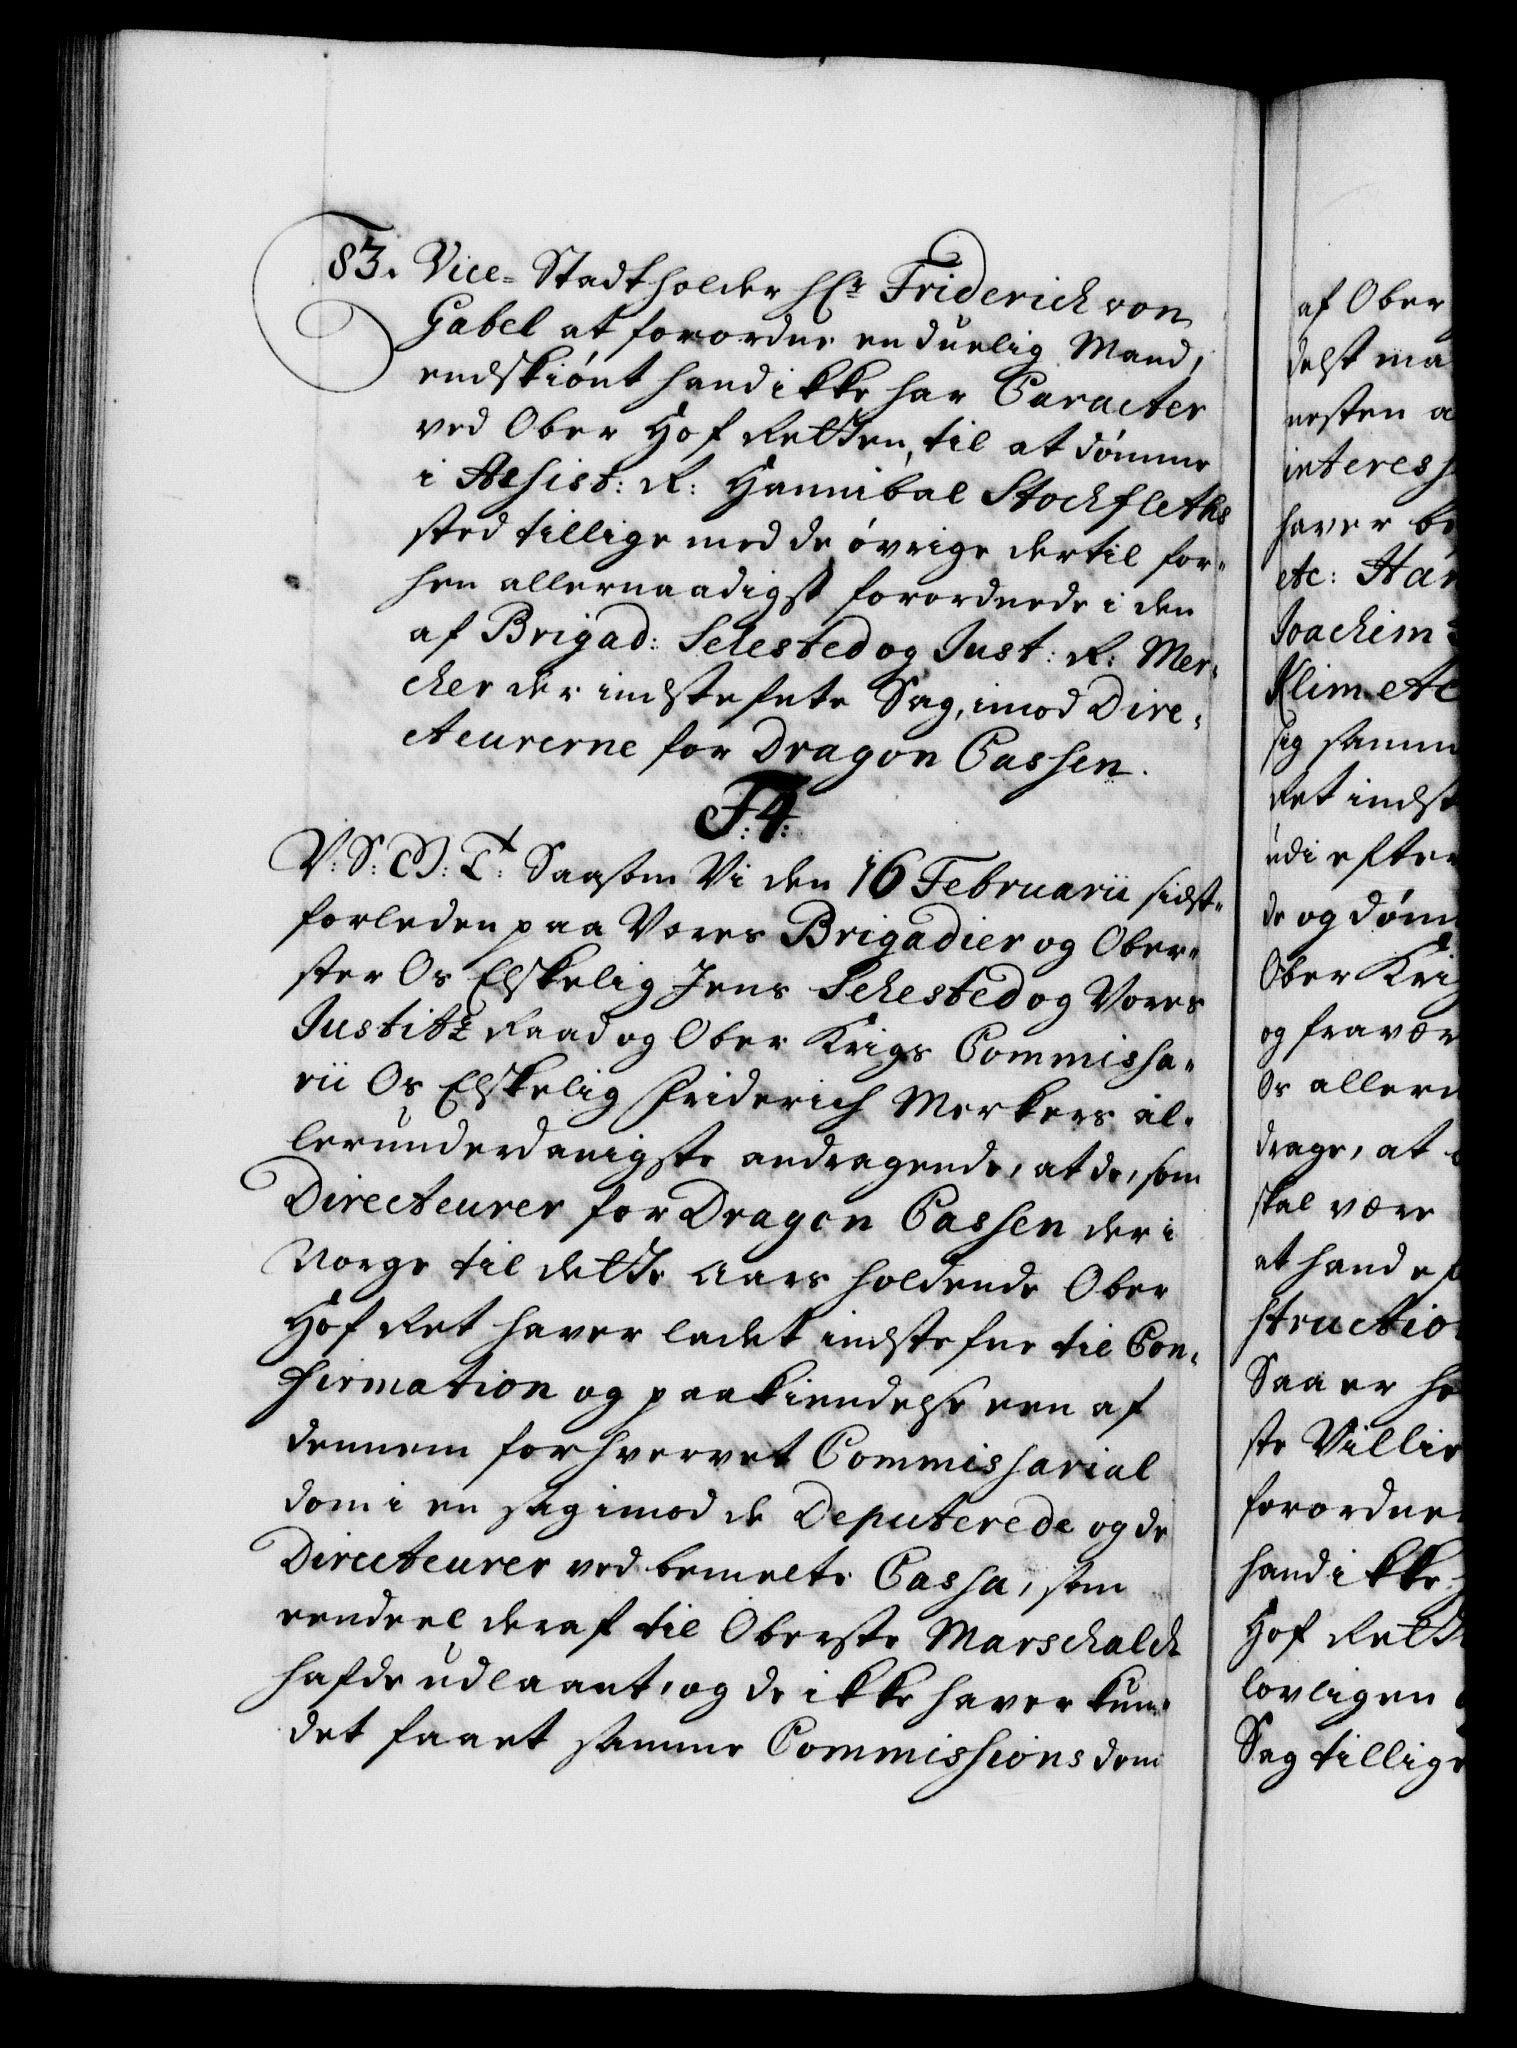 83. Vice-Stadtholder Hr Friderich von
Gabel at forordne en duelig Mand,
endskiønt hand ikke har Caracter
ved Ober Hof Retten, til at dømme
i Assist: R: Hannibal Stockfleths
sted tillige med de øvrige dertil for-
hen allernaadigst forordnede i den
af Brigad: Sehested og Just: R: Mer-
cker der indstefnte Sag, imod Dire-
cteurerne for Dragon Cassen.
F:4:
V: S: G: T: Saasom Vi den 16 Februarii sidst-
forleden paa Vores Brigadier og Ober-
ster Os Elskelig Jens Sehested og Vores
Justitz Raad og Ober Krigs Commissa-
rii Os Elskelig Friderich Merkers al-
lerunderdanigste andragende, at de, som
Directeurer for Dragon Cassen der i
Norge til dette Aars holdende Ober
Hof Ret haver ladet indstefne til Con-
firmation og paakiendelse een af
dennem forhvervet Commissarial
dom i en sag imod de Deputerede og de
Directeurer ved bemelte Cassa, som
eendeel deraf til Oberste Marschalch
hafde udlaant, og de ikke haver kun-
det faaet samme Commissions dom
af Ober
delst ma
nesten a
interess
haver be
etc: Han
Joachim
Klim etc
sig samm
Ret indst
udi efter
de og døm
Ober Krig
og fravær
Os allern
drage, at
skal være
at hand ef
structio
Saa er he
ste Villie
forordne
hand ikke
Hof Rett
lovligen
Sag tillige